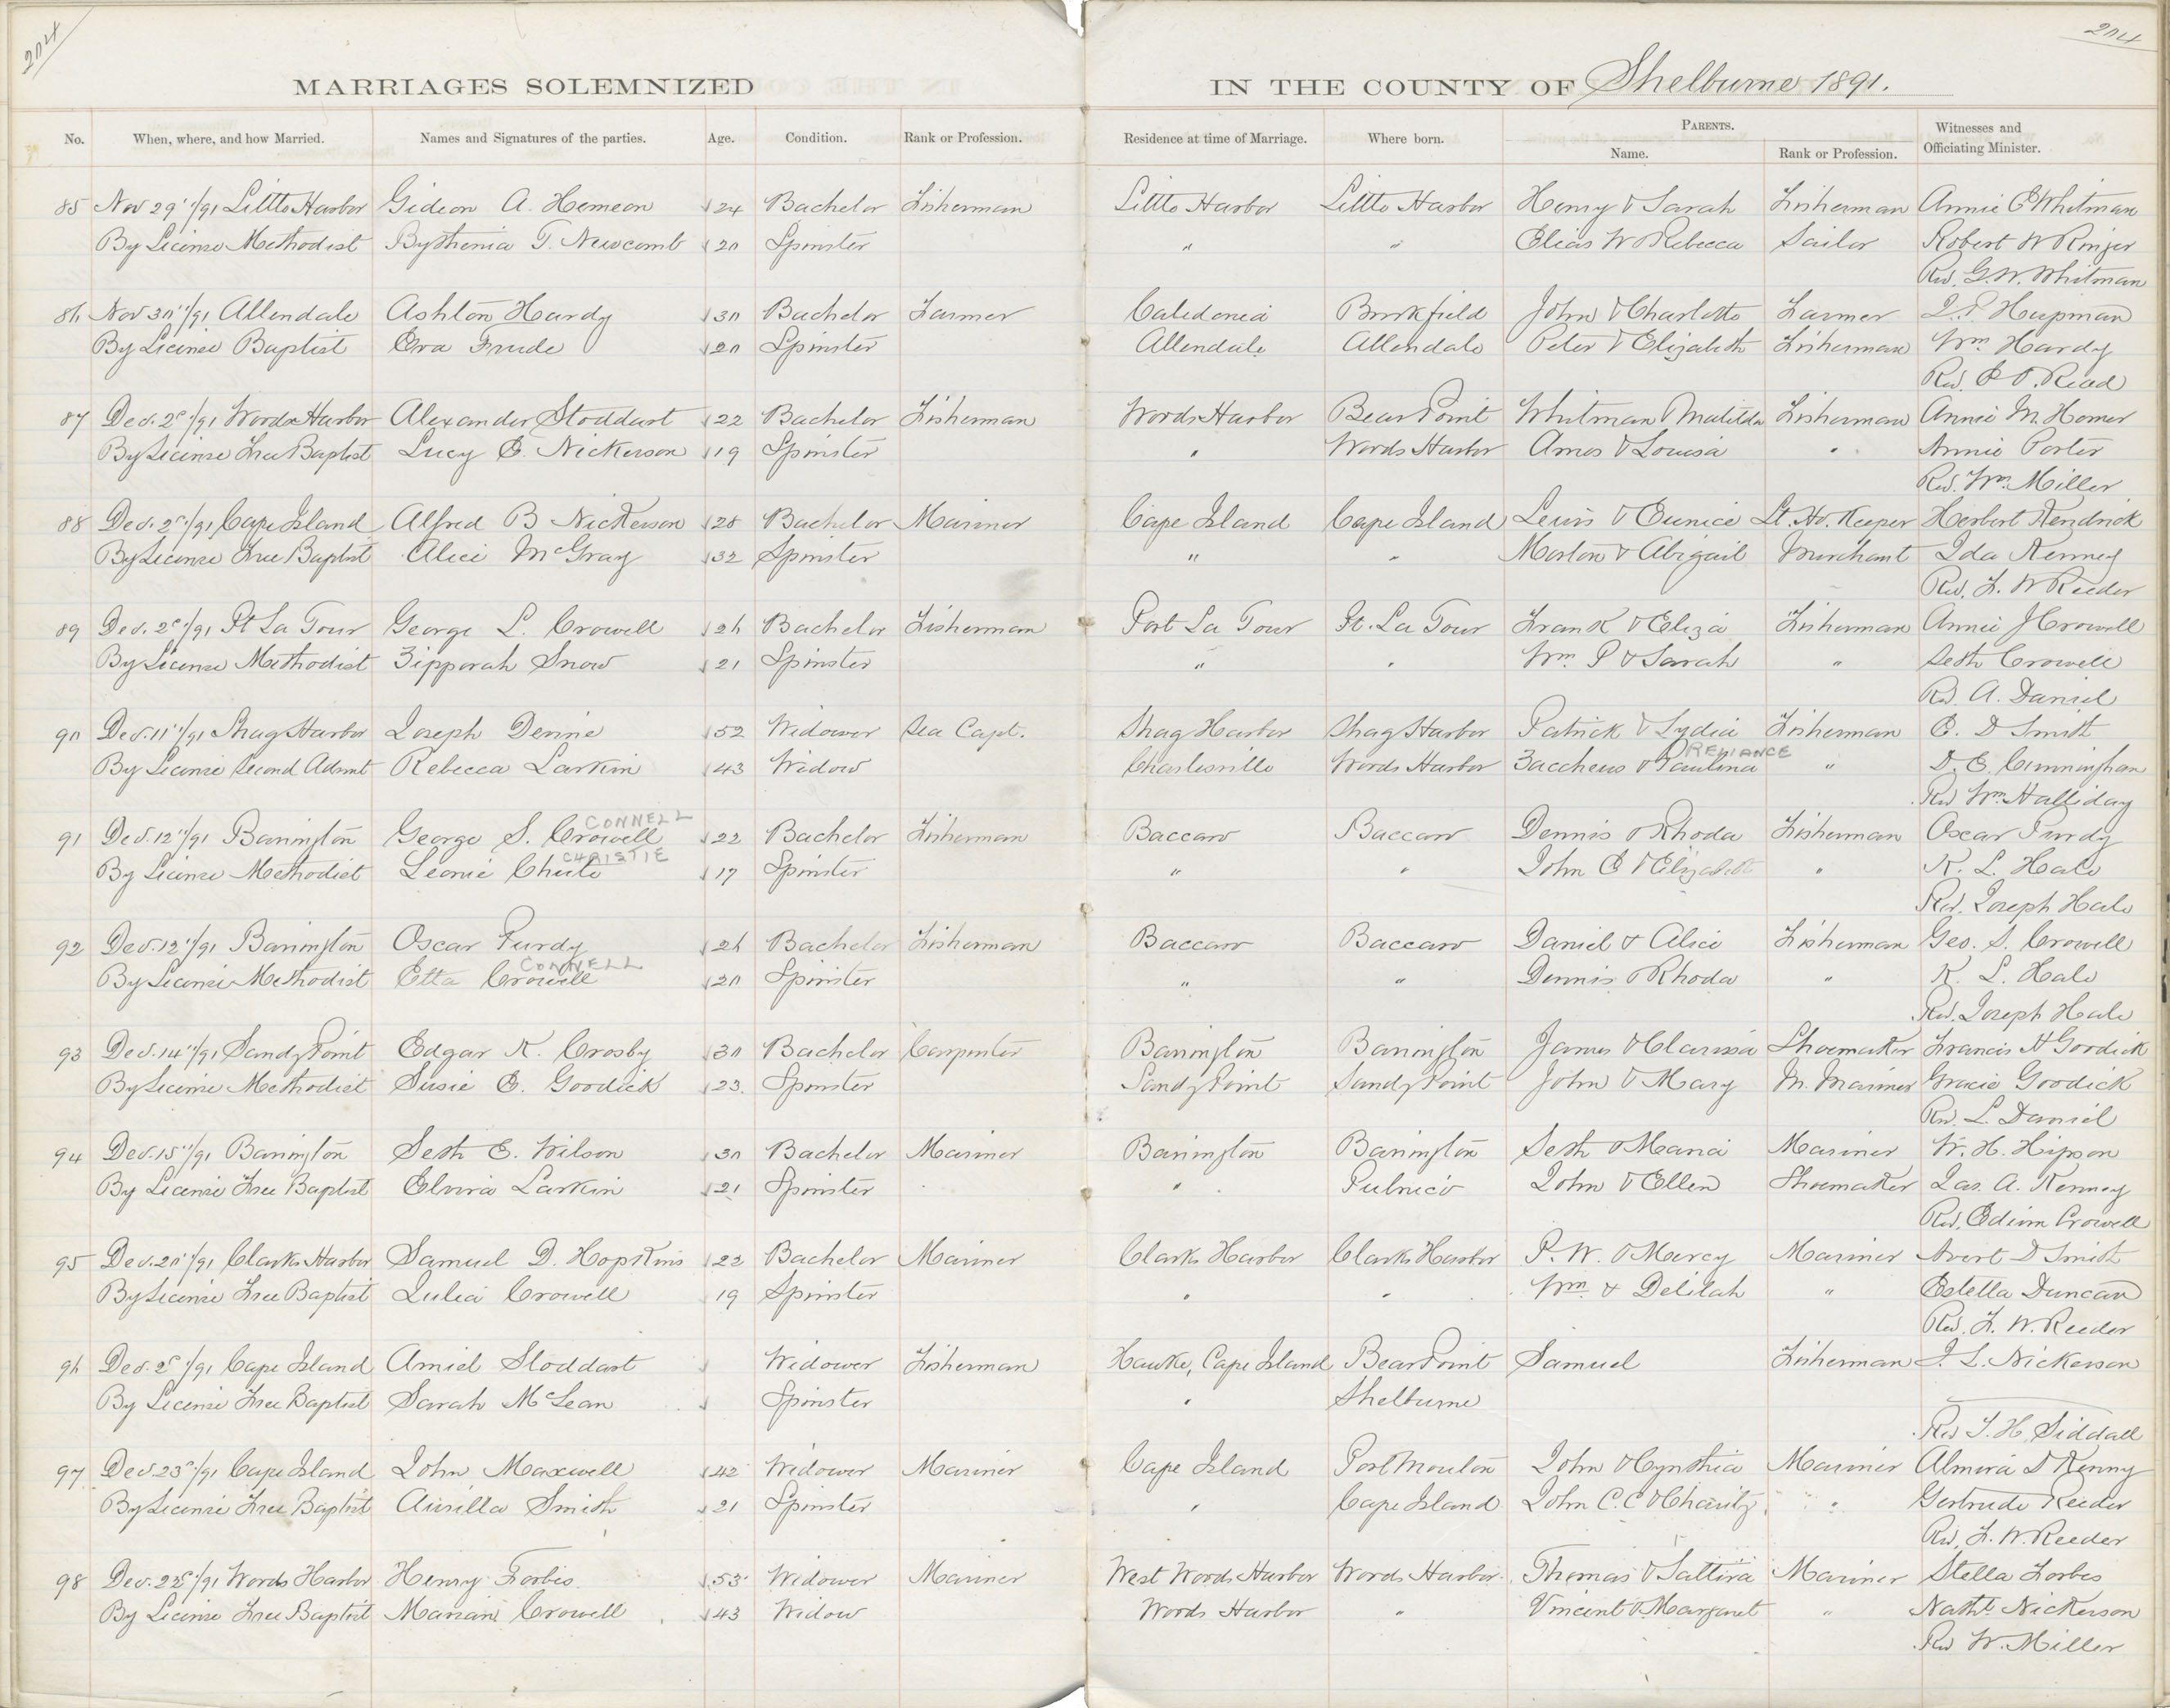 204
204
MARRIAGES SOLEMNIZED IN THE COUNTY OF Shelburne 1891.
No. When, where, and how Married. Names and Signatures of the parties. Age. Condition. Rank or Profession. Residence at time of Marriage. Where born. PARENTS. Name. Rank or Profession. Witnesses and Officiating Minister.
85 Nov 29"/91 Little Harbor Gideon A. Hemeon 24 Bachelor Fisherman Little Harbor Little Harbor Henry & Sarah Fisherman Annie E Whitman
By License Methodist Bythenia T. Newcomb 20 Spinster " " Elias W Rebecca Sailor Robert W Ringer
Rev. G. W. Whitman
86 Nov 30"/91 Allendale Ashton Hardy 30 Bachelor Farmer Caledonia Brookfield John & Charlotte Farmer Hupman
By License Baptist Eva Frude 20 Spinster Allendale Allendale Peter & Elizabeth Fisherman Wm Hardy
Rev. Read
87 Dec. 2"/91 Woods Harbor Alexander Stoddart 22 Bachelor Fisherman Woods Harbor Bear Point Whitman & Matilda Fisherman Annie M. Homer
By License Free Baptist Lucy E. Nickerson 19 Spinster " Woods Harbor Amos & Louisa " Annie Porter
Rev. Wm. Miller
88 Dec. 2"/91 Cape Island Alfred B Nickerson 28 Bachelor Mariner Cape Island Cape Island Lewis & Eunice Lt. Ho. Keeper Herbert Kendrick
By License Free Baptist Alice McGray 32 Spinster " " Morton & Abigail Merchant Ida Kenney
Rev. F. W Reeder
89 Dec. 2"/91 Pt La Tour George L. Crowell 26 Bachelor Fisherman Port La Tour Pt. La Tour Frank & Eliza Fisherman Annie J Crowell
By License Methodist Zipporah Snow 21 Spinster " " Wm P & Sarah " Seth Crowell
Rev A. Daniel
90 Dec. 11"/91 Shag Harbor Joseph Denine 52 Widower Sea Capt. Shag Harbor Shag Harbor Patrick & Lydia Fisherman E. D Smith
By License Second Advnt Rebecca Larkin 43 Widow Charlesville Woods Harbor Zaccheus & Paulina RELIANCE " D. E. Cunningham
Rev Wm. Halliday
91 Dec. 12"/91 Barrington George S. Crowell CONNELL 22 Bachelor Fisherman Baccaro Baccaro Dennis & Rhoda Fisherman Oscar Purdy
By License Methodist Leonie Chute CHRISTIE 17 Spinster " " John E & Elizabeth " K. L. Hale
Rev. Joseph Hale
92 Dec. 12"/91 Barrington Oscar Purdy 26 Bachelor Fisherman Baccaro Baccaro Daniel & Alice Fisherman Geo. S. Crowell
By License Methodist Etta Crowell CONNELL 20 Spinster " " Dennis & Rhoda " K. L. Hale
Rev. Joseph Hale
93 Dec. 14"/91 Sandy Point Edgar K. Crosby 30 Bachelor Carpenter Barrington Barrington James & Clarissa Shoemaker Francis H Goodick
By License Methodist Susie E. Goodick 23. Spinster Sandy Point Sandy Point John & Mary M. Mariner Gracie Goodick
Rev. L. Daniel
94 Dec. 15"/91 Barrington Seth E. Wilson 30 Bachelor Mariner Barrington Barrington Seth & Maria Mariner W. H. Hipson
By License Free Baptist Elvira Larkin 21 Spinster " Pubnico John & Ellen Shoemaker Jas. A. Kenney
Rev. Edwin Crowell
95 Dec. 20"/91 Clarks Harbor Samuel D. Hopkins 22 Bachelor Mariner Clarks Harbor Clarks Harbor P. W. & Mercy Mariner Avert D Smith
By License Free Baptist Julia Crowell 19 Spinster " " Wm. & Delilah " Estella Duncan
Rev. F. W. Reeder
96 Cape Island Amiel Stoddart Widower Fisherman Hawke, Cape Island Bear Point Samuel Fisherman L. Nickerson
By License Free Baptist Sarah McLean Spinster " Shelburne
Rev H. Siddall
97 Dec. 23"/91 Cape Island John Maxwell 42 Widower Mariner Cape Island Port Mouton John & Cynthia Mariner Almira D Kenny
By License Free Baptist Aurilla Smith 21 Spinster " Cape Island John C. C & Charity " Gertrude Reeder
Rev. F. W. Reeder
98 Woods Harbor Henry Forbes 53 Widower Mariner West Woods Harbor Woods Harbor Thomas & Mariner Stella Forbes
By License Free Baptist Crowell 43 Widow Woods Harbor " Vincent & Margaret " Natht. Nickerson
Rev W. Miller